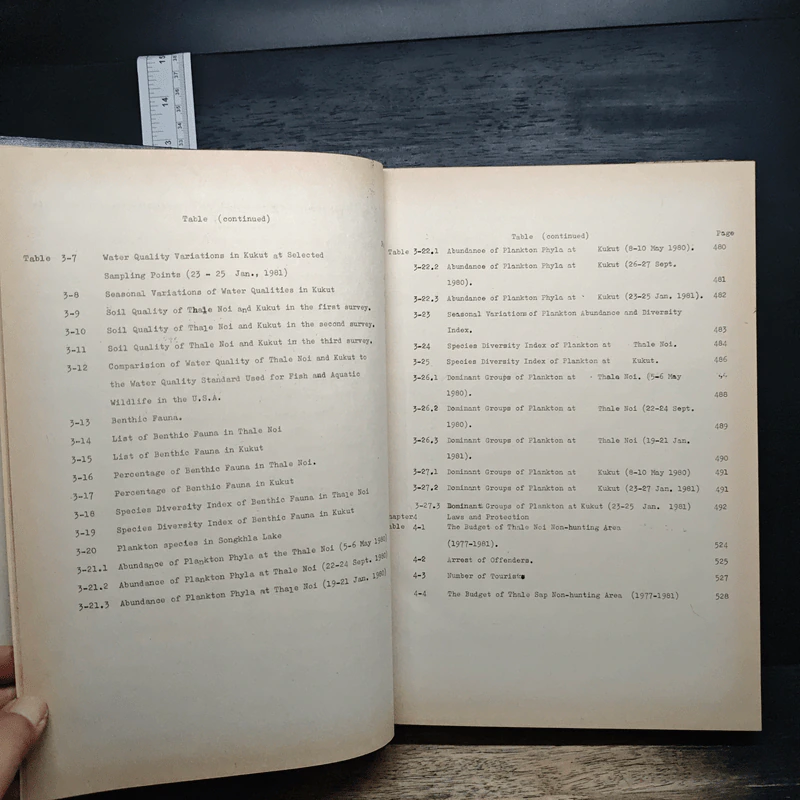 Table (continued)
Table 3-7 Water Quality Variations in Kukut at Selected
Sampling Points (23 - 25 Jan., 1981)
3-8 Seasonal Variations of Water Qualities in Kukut
3-9 Soil Quality of Thale Noi and Kukut in the first survey.
3-10 Soil Quality of Thale Noi and Kukut in the second survey.
3-11 Soil Quality of Thale Noi and Kukut in the third survey.
3-12 Comparision of Water Quality of Thale Noi and Kukut to
the Water Quality Standard Used for Fish and Aquatic
Wildlife in the U.S.A.
3-13 Benthic Fauna.
3-14 List of Benthic Fauna in Thale Noi
3-15 List of Benthic Fauna in Kukut
3-16 Percentage of Benthic Fauna in Thale Noi.
3-17 Percentage of Benthic Fauna in Kukut
3-18 Species Diversity Index of Benthic Fauna in Thale Noi
3-19 Species Diversity Index of Benthic Fauna in Kukut
3-20 Plankton species in Songkhla Lake
3-21.1 Abundance of Plankton Phyla at the Thale Noi (5-6 May 1980)
3-21.2 Abundance of Plankton Phyla at Thale Noi (22-24 Sept. 1980)
3-21.3 Abundance of Plankton Phyla at Thale Noi (19-21 Jan. 1980)
Table (continued)
Page
Table 3-22.1 Abundance of Plankton Phyla at Kukut (8-10 May 1980). 480
3-22.2 Abundance of Plankton Phyla at Kukut (26-27 Sept.
1980). 481
3-22.3 Abundance of Plankton Phyla at Kukut (23-25 Jan. 1981). 482
3-23 Seasonal Variations of Plankton Abundance and Diversity
Index. 483
3-24 Species Diversity Index of Plankton at Thale Noi. 484
3-25 Species Diversity Index of Plankton at Kukut. 486
3-26.1 Dominant Groups of Plankton at Thala Noi. (5-6 May
1980). 488
3-26.2 Dominant Groups of Plankton at Thale Noi (22-24 Sept.
1980). 489
3-26.3 Dominant Groups of Plankton at Thale Noi (19-21 Jan.
1981). 490
3-27.1 Dominant Groups of Plankton at Kukut (8-10 May 1980) 491
3-27.2 Dominant Groups of Plankton at Kukut (23-27 Jan. 1981) 491
3-27.3 Dominant Groups of Plankton at Kukut (23-25 Jan. 1981) 492
hapter4 Laws and Protection
ble 4-1 The Budget of Thale Noi Non-hunting Area
(1977-1981). 524
4-2 Arrest of Offenders. 525
4-3 Number of Tourists 527
4-4 The Budget of Thale Sap Non-hunting Area (1977-1981) 528